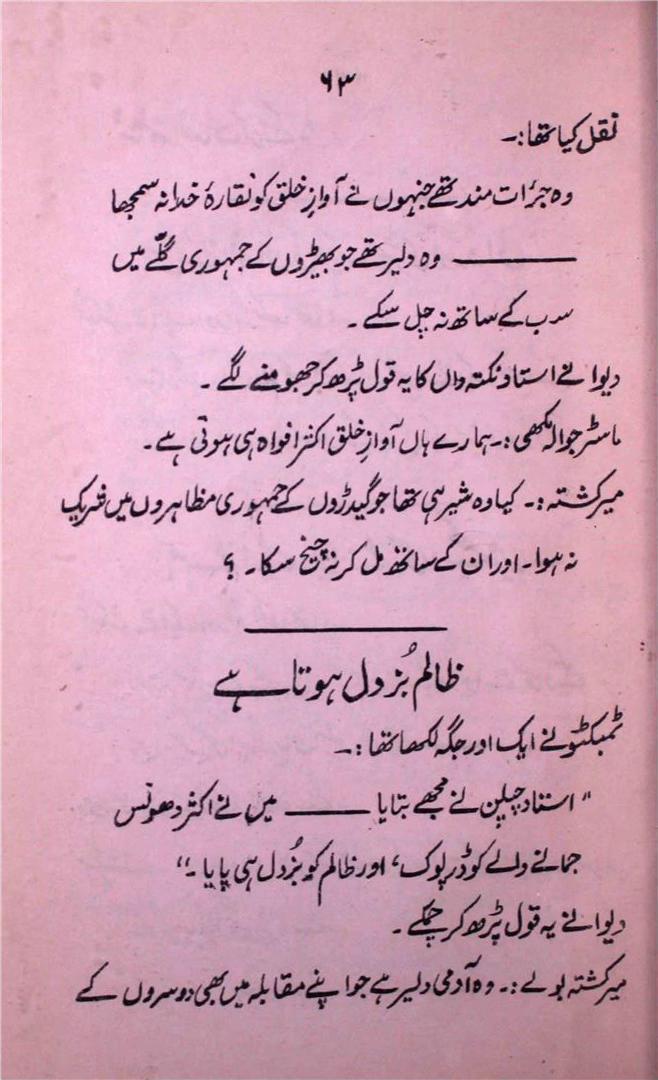 ۶۳
نقل کیا تھا:۔
وہ جرٔات مند تھے جنہوں نے آوازِ خلق کو نقارۂ خدا نہ سمجھا
——— وہ دلیر تھے جو بھیڑوں کے جمہوری گلّے میں
سب کے ساتھ نہ چل سکے۔
دیوانے استاد نکتہ داں کا یہ قول پڑھ کر جھومنے لگے۔
ماسٹر جوالہ مکھی:۔ ہمارے ہاں آوازِ خلق اکثر افواہ ہی ہوتی ہے۔
میر کشتہ:۔ کیا وہ شیر ہی تھا جو گیدڑوں کے جمہوری مظاہروں میں شریک
نہ ہوا۔ اور ان کے ساتھ مل کر نہ چیخ سکا۔ ؟
ظالم بُزدل ہوتا ہے
ٹمبکٹو نے ایک اور جگہ لکھا تھا:۔
"استاد چپلن نے مجھے بتایا ——— میں نے اکثر دھونس
جمانے والے کو ڈرپوک، اور ظالم کو بُزدل ہی پایا۔"
دیوانے یہ قول پڑھ کر چمکے۔
میر کشتہ بولے:۔ وہ آدمی دلیر ہے جو اپنے مقابلہ میں بھی دوسروں کے